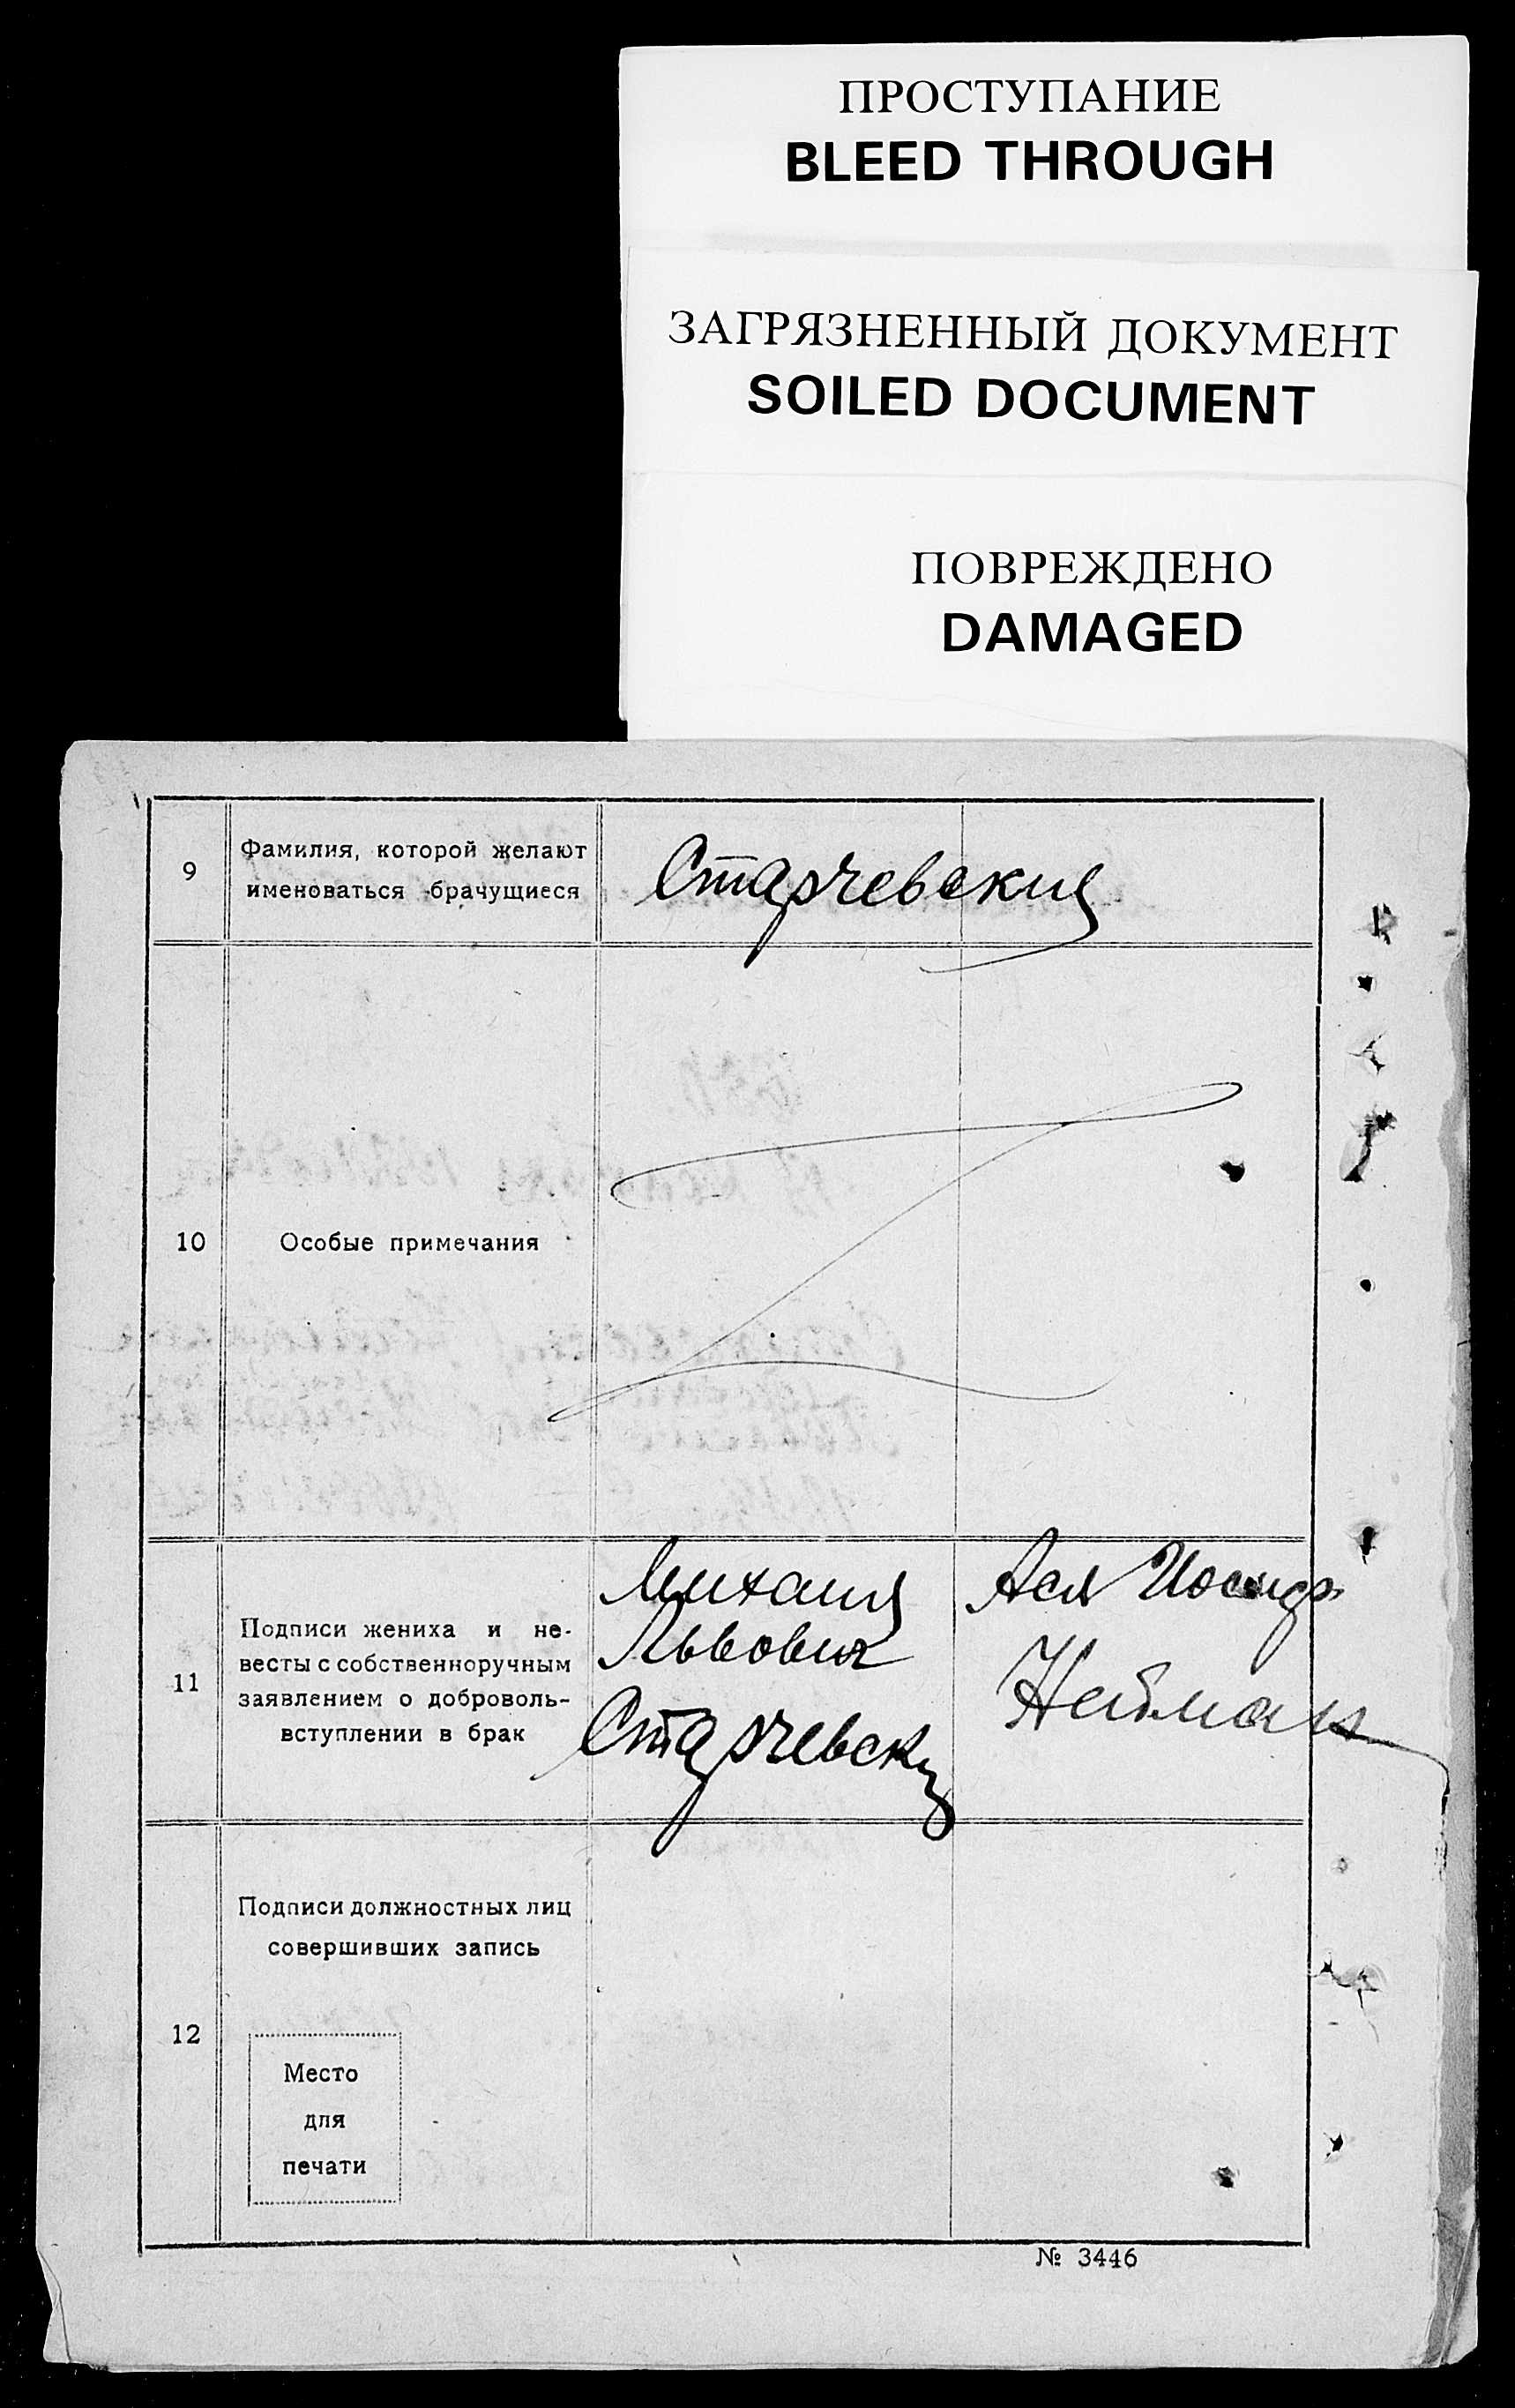 ПРОСТУПАНИЕ
BLEED THROUGH
ЗАГРЯЗНЕННЫЙ ДОКУМЕНТ
SOILED DOCUMENT
ПОВРЕЖДЕНО
DAMAGED
9
Фамилия, которой желают
именоваться брачущиеся
Старчевский
10
Особые примечания
11
Подписи жениха и не-
весты с собственноручным
заявлением о доброволь-
вступлении в брак
Михаил
Львович
Старчевский
Ася
Нейман
12
Подписи должностных лиц
совершивших запись
Место
для
печати
№ 3446